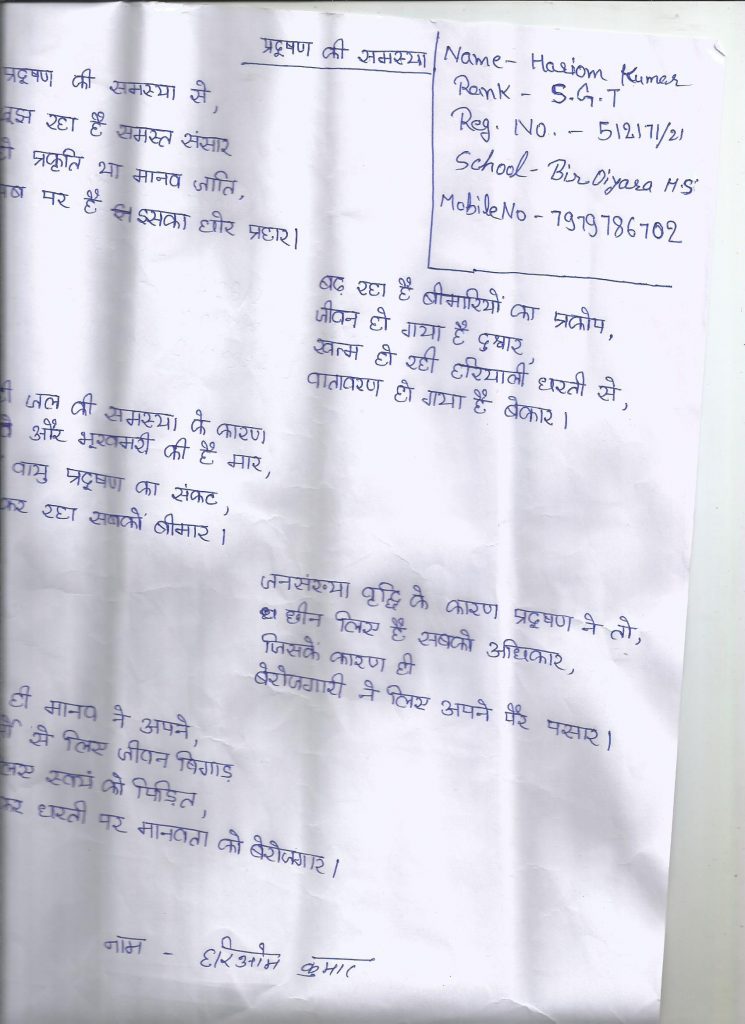 प्रदूषण की समस्या
Name- Hariom Kumar
Rank - S.G.T
Reg. No. - 512171/21
School- Bir Oiyara H.S
Mobile No - 7979786702
प्रदूषण की समस्या से,
जूझ रहा है समस्त संसार
हो प्रकृति या मानव जाति,
सब पर है इसका घोर प्रहार।
बढ़ रहा है बीमारियों का प्रकोप,
जीवन हो गया है दुश्वार,
खत्म हो रही हरियाली धरती से,
वातावरण हो गया है बेकार।
जल की समस्या के कारण
और भूखमरी की है मार,
वायु प्रदूषण का संकट,
कर रहा सबकों बीमार।
जनसंख्या वृद्धि के कारण प्रदूषण ने तो,
छीन लिए है सबको अधिकार,
जिसकें कारण ही
बेरोजगारी ने लिए अपने पैर पसार।
ही मानव ने अपने,
से लिए जीवन बिगाड़
स्वयं को पिड़ित,
कर धरती पर मानवता को बेरोजगार।
नाम - हरिओम कुमार